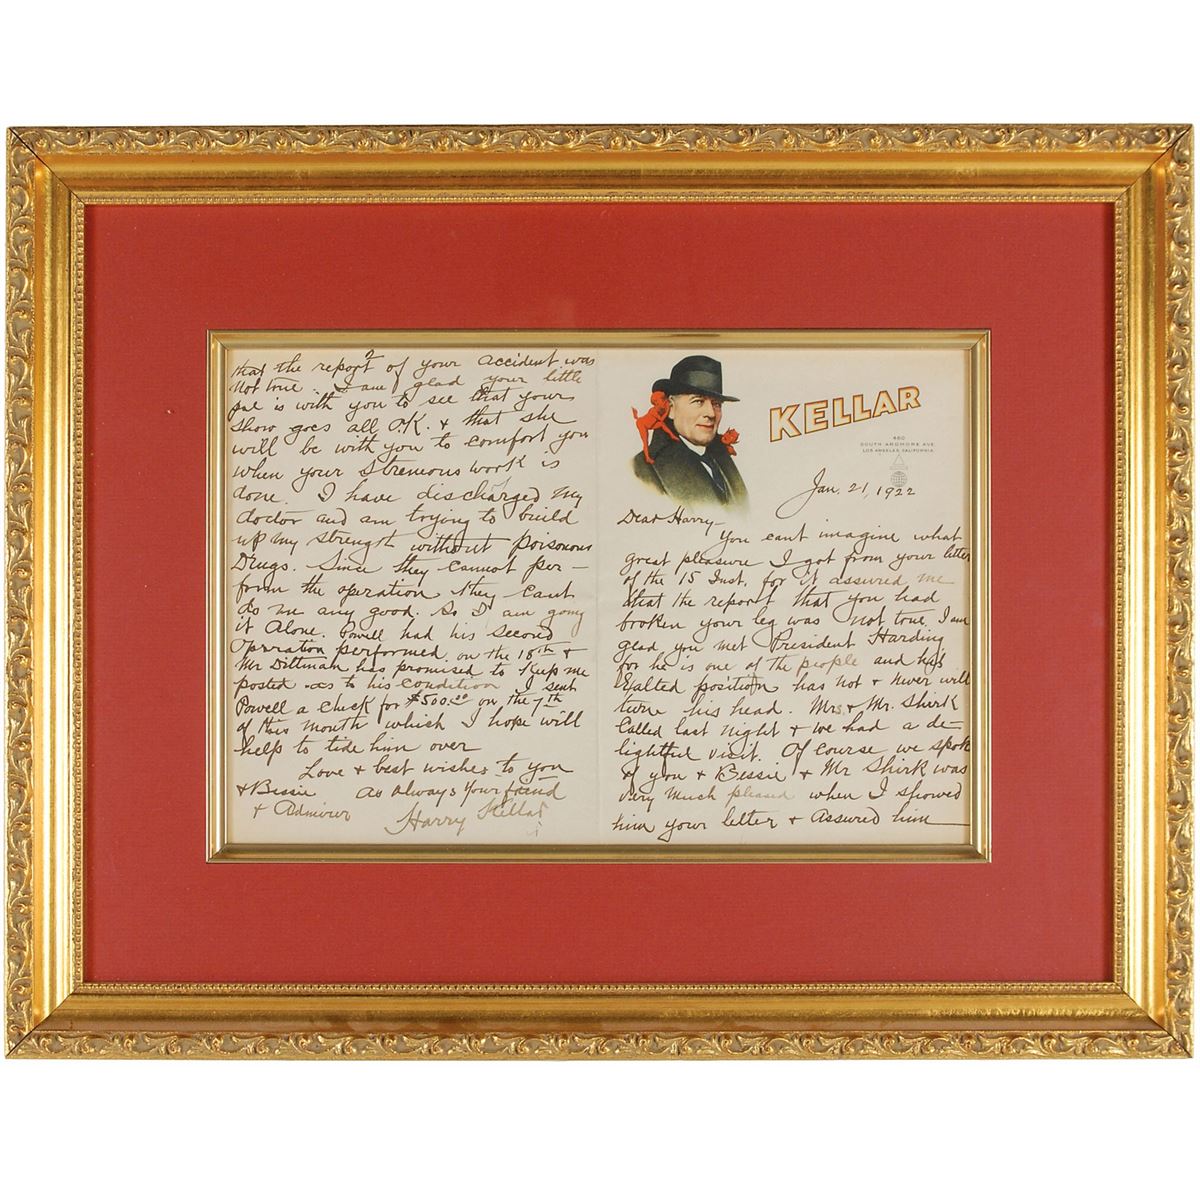 KELLAR
460
SOUTH ARDMORE AVE
LOS ANGELES, CALIFORNIA.
Jan. 21, 1922
Dear Harry-
You cant imagine what
great pleasure I got from your letter
of the 15 Inst. for it assured me
that the report that you had
broken your leg was not true. I am
glad you met President Harding
for he is one of the people and his
Exalted position has not & never will
turn his head. Mrs. & Mr. Shirk
Called last night & we had a de-
lightful visit. Of course we spok
of you & Bessie & Mr Shirk was
very much pleased when I showed
him your letter & assured him
that the report of your accident was
not true. I am glad your little
gal is with you to see that your
show goes all O.K. & that she
will be with you to comfort you
when your strenuous work is
done. I have discharged my
doctor and am trying to build
up my strength without poisonous
Drugs. Since they cannot per-
form the operation they cant
do me any good. So I am going
it alone. Powell had his second
Operation performed on the 18th &
Mr Dittman has promised to Keep me
posted as to his condition I sent
Powell a check for $500.00 on the 7th
of this month which I hope will
help to tide him over
Love & best wishes to you
& Bessie As always Your friend
& Admirer Harry Kellar